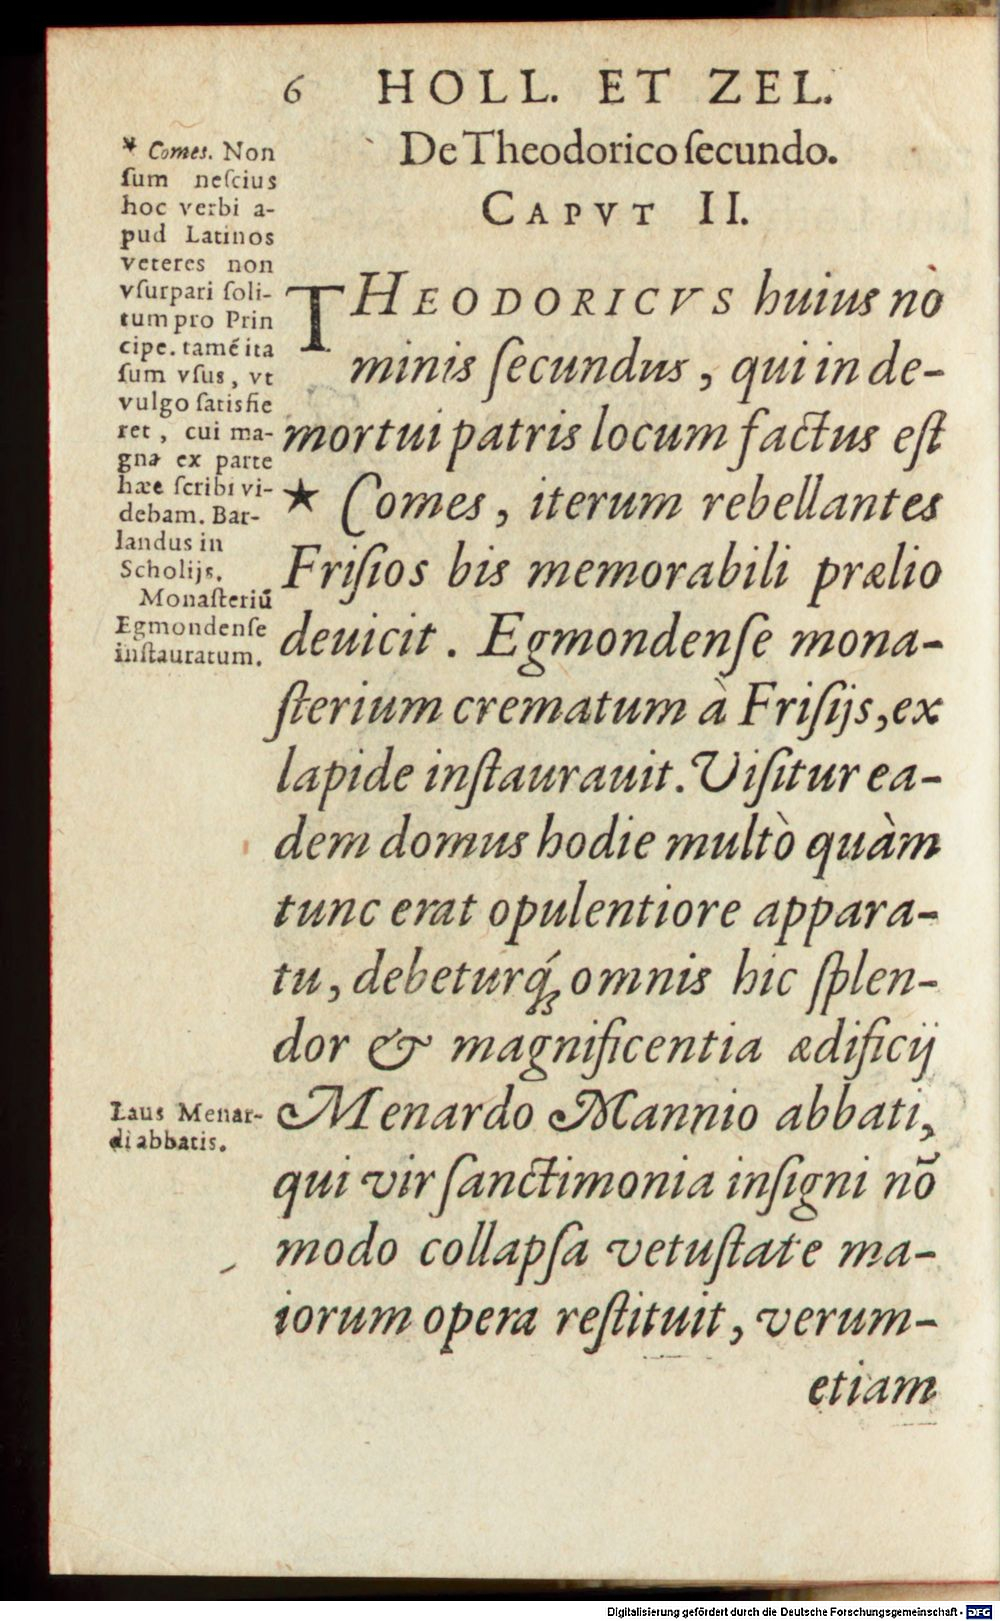 6 HOLL. ET ZEL.
De Theodorico ſecundo.
CAPVT II.
* Comes. Non
ſum neſcius
hoc verbi a-
pud Latinos
veteres non
vſurpari ſoli-
tum pro Prin
cipe. tamẽ ita
ſum vſus, vt
vulgo ſatisfie
ret, cui ma-
gna ex parte
hæc ſcribi vi-
debam. Bar-
landus in
Scholijs.
Monaſteriũ
Egmondenſe
inſtauratum.
THEODORICVS huius nò
minis ſecundus, qui in de-
mortui patris locum factus eſt
★ Comes, iterum rebellantes
Friſios bis memorabili prælio
deuicit. Egmondenſe mona-
ſterium crematum à Friſijs, ex
lapide inſtaurauit. Viſitur ea-
dem domus hodie multò quàm
tunc erat opulentiore appara-
tu, debeturq́; omnis hic ſplen-
dor & magnificentia ædificij
Menardo Mannio abbati,
qui vir ſanctimonia inſigni nõ
modo collapſa vetuſtate ma-
iorum opera reſtituit, verum-
etiam
Laus Menar-
di abbatis.
Digitalisierung gefördert durch die Deutsche Forschungsgemeinschaft - DFG